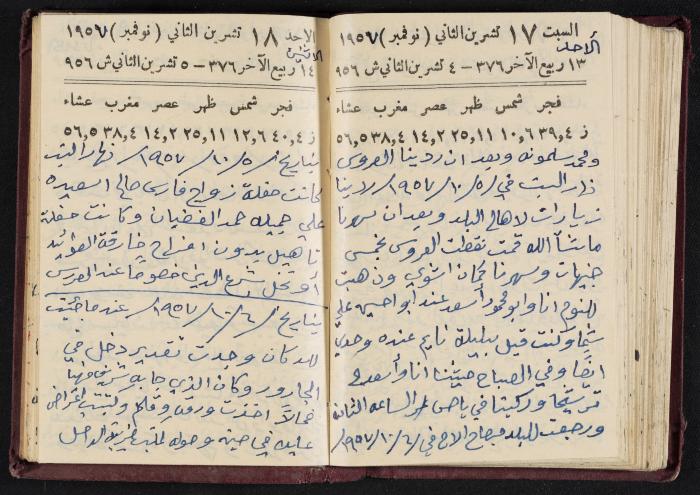 السبت ١٧ تشرين الثاني ( نوفمبر ) ١٩٥٦٧
الأحد
١٣ ربيع الآخر ٣٧٦ – ٤ تشرين الثاني ش ٩٥٦
فجر شمس ظهر عصر مغرب عشاء
ز ٣٩,٤ ١٠,٦ ٢٥,١١ ١٤,٢ ٣٨,٤ ٥٦,٥
ومحمد سلمونه وبعد ان ردينا العروس
دار البيت في ٥/١٠/١٩٥٧ ردينا
زيارات لاهالي البلد وبعد ان سهرنا
ماشاء الله قمت نقطت العروس بخمس
جنيهات وسهرنا كمان اشوي وذهبت
للنوم انا وابو محمود أسعد عند ابو احسين علي
وكنت قبل بليلة نايم عنده وحدي
ايضا وفي الصباح جيتنا انا وأسعد
ترشيحا وركبنا في باص الساعه الثانيه
ورجعت للبلد صباح الاحد في ٦/١٠/١٩٥٧
الاحد ١٨ تشرين الثاني ( نوفمبر ) ١٩٥٦٧
الاثنين
١٤ ربيع الآخر ٣٧٦ – ٥ تشرين الثاني ش ٩٥٦
فجر شمس ظهر عصر مغرب عشاء
ز ٤٠,٤ ١٢,٦ ٢٥,١١ ١٤,٢ ٣٨,٤ ٥٦,٥
بتاريخ ٥/١٠/١٩٥٧ نهار السبت
كانت حفلة زواج فارس صالح اسعيد
علي جميله حمد الغضبان وكانت حفلة
تأهيل بدون افراح خارقة العوائد
أو تخل بشرع الدين خصوصا عند العريس
بتاريخ ٦/١٠/١٩٥٧ عندما جيت
للدكان وجدت تقدير دخل في
الجارور وكان الذي جابه شفيق مهنا
فحالا اخذت ورقه وقلم وكتبت اعتراض
عليه في حينه وحوله لمكتب ضريبة الدخل